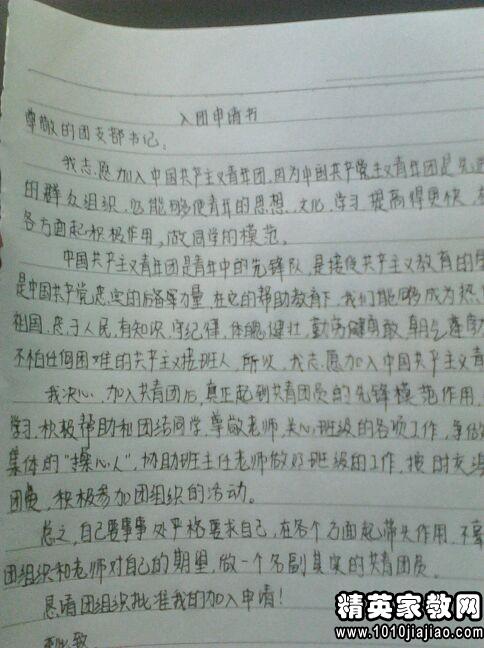 入团申请书
尊敬的团支部书记:
我志愿加入中国共产主义青年团,因为中国共产党主义青年团是先进
的群众组织,它能够使青年的思想、文化、学习提高得更快,在
各方面起积极作用,做同学的模范。
中国共产主义青年团是青年中的先锋队,是接受共产主义教育的学
是中国共产党忠实的后备军力量,在它的帮助教育下,我们能够成为热
祖国,忠于人民,有知识,守纪律,体魄健壮,勤劳勇敢,朝气蓬勃
不怕任何困难的共产主义接班人,所以,我志愿加入中国共产主义青
我决心,加入共青团后,真正起到共青团员的先锋模范作用,
学习,积极帮助和团结同学,尊敬老师,关心班级的各项工作,争做
集体的"操心人",协助班主任老师做好班级的工作,按时交
团费,积极参加团组织的活动。
总之,自己要事事处严格要求自己,在各个方面起带头作用,不辜
团组织和老师对自己的期望,做一个名副其实的共青团员。
恳请团组织批准我的加入申请!
致
精英家教网
www.1010jiajiao.com